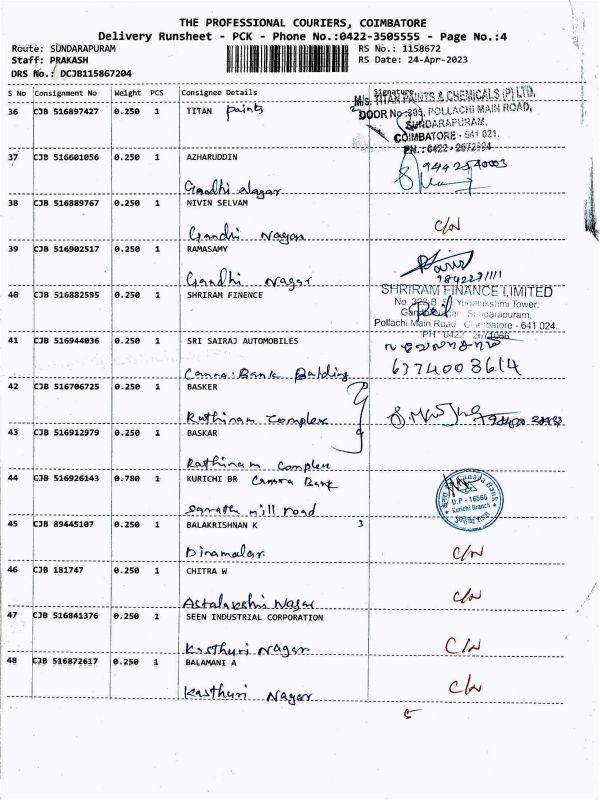 THE PROFESSIONAL COURIERS, COIMBATORE
Delivery Runsheet - PCK - Phone No.:0422-3505555 - Page No.:4
Route: SUNDARAPURAM RS No.: 1158672
Staff: PRAKASH RS Date: 24-Apr-2023
DRS No.: DCJB115867204
S No Consignment No Weight PCS Consignee Details Signature
36 CJB 516897427 0.250 1 TITAN paints
M/s. TITAN PAINTS & CHEMICALS (P) LTD.
DOOR No :395, POLLACHI MAIN ROAD,
SUNDARAPURAM,
COIMBATORE - 641 021.
PH. : 0422 - 2672394
37 CJB 516601056 0.250 1 AZHARUDDIN
Gandhi Nagar
38 CJB 516889767 0.250 1 NIVIN SELVAM C/N
Gandhi Nagar
39 CJB 516902517 0.250 1 RAMASAMY
Gandhi Nagar
40 CJB 516882595 0.250 1 SHRIRAM FINENCE
SHRIRAM FINANCE LIMITED
Tower,
Sundarapuram,
Pollachi Main Road Coimbatore - 641 024.
41 CJB 516944036 0.250 1 SRI SAIRAJ AUTOMOBILES
Canra Bank Balding 6374008614
42 CJB 516706725 0.250 1 BASKER
Rathinam Complex
43 CJB 516912979 0.250 1 BASKAR
Rathinam Complex
44 CJB 516926143 0.780 1 KURICHI BR Canara Bank
Canara Bank
D.P - 16566
Kurichi Branch
mill road
45 CJB 89445107 0.250 1 BALAKRISHNAN K 3
Dinamalar C/N
46 CJB 181747 0.250 1 CHITRA W
Astalakshmi Nagar C/N
47 CJB 516841376 0.250 1 SEEN INDUSTRIAL CORPORATION
Kasthuri Nagar C/N
48 CJB 516872617 0.250 1 BALAMANI A
Kasthuri Nagar C/N
5